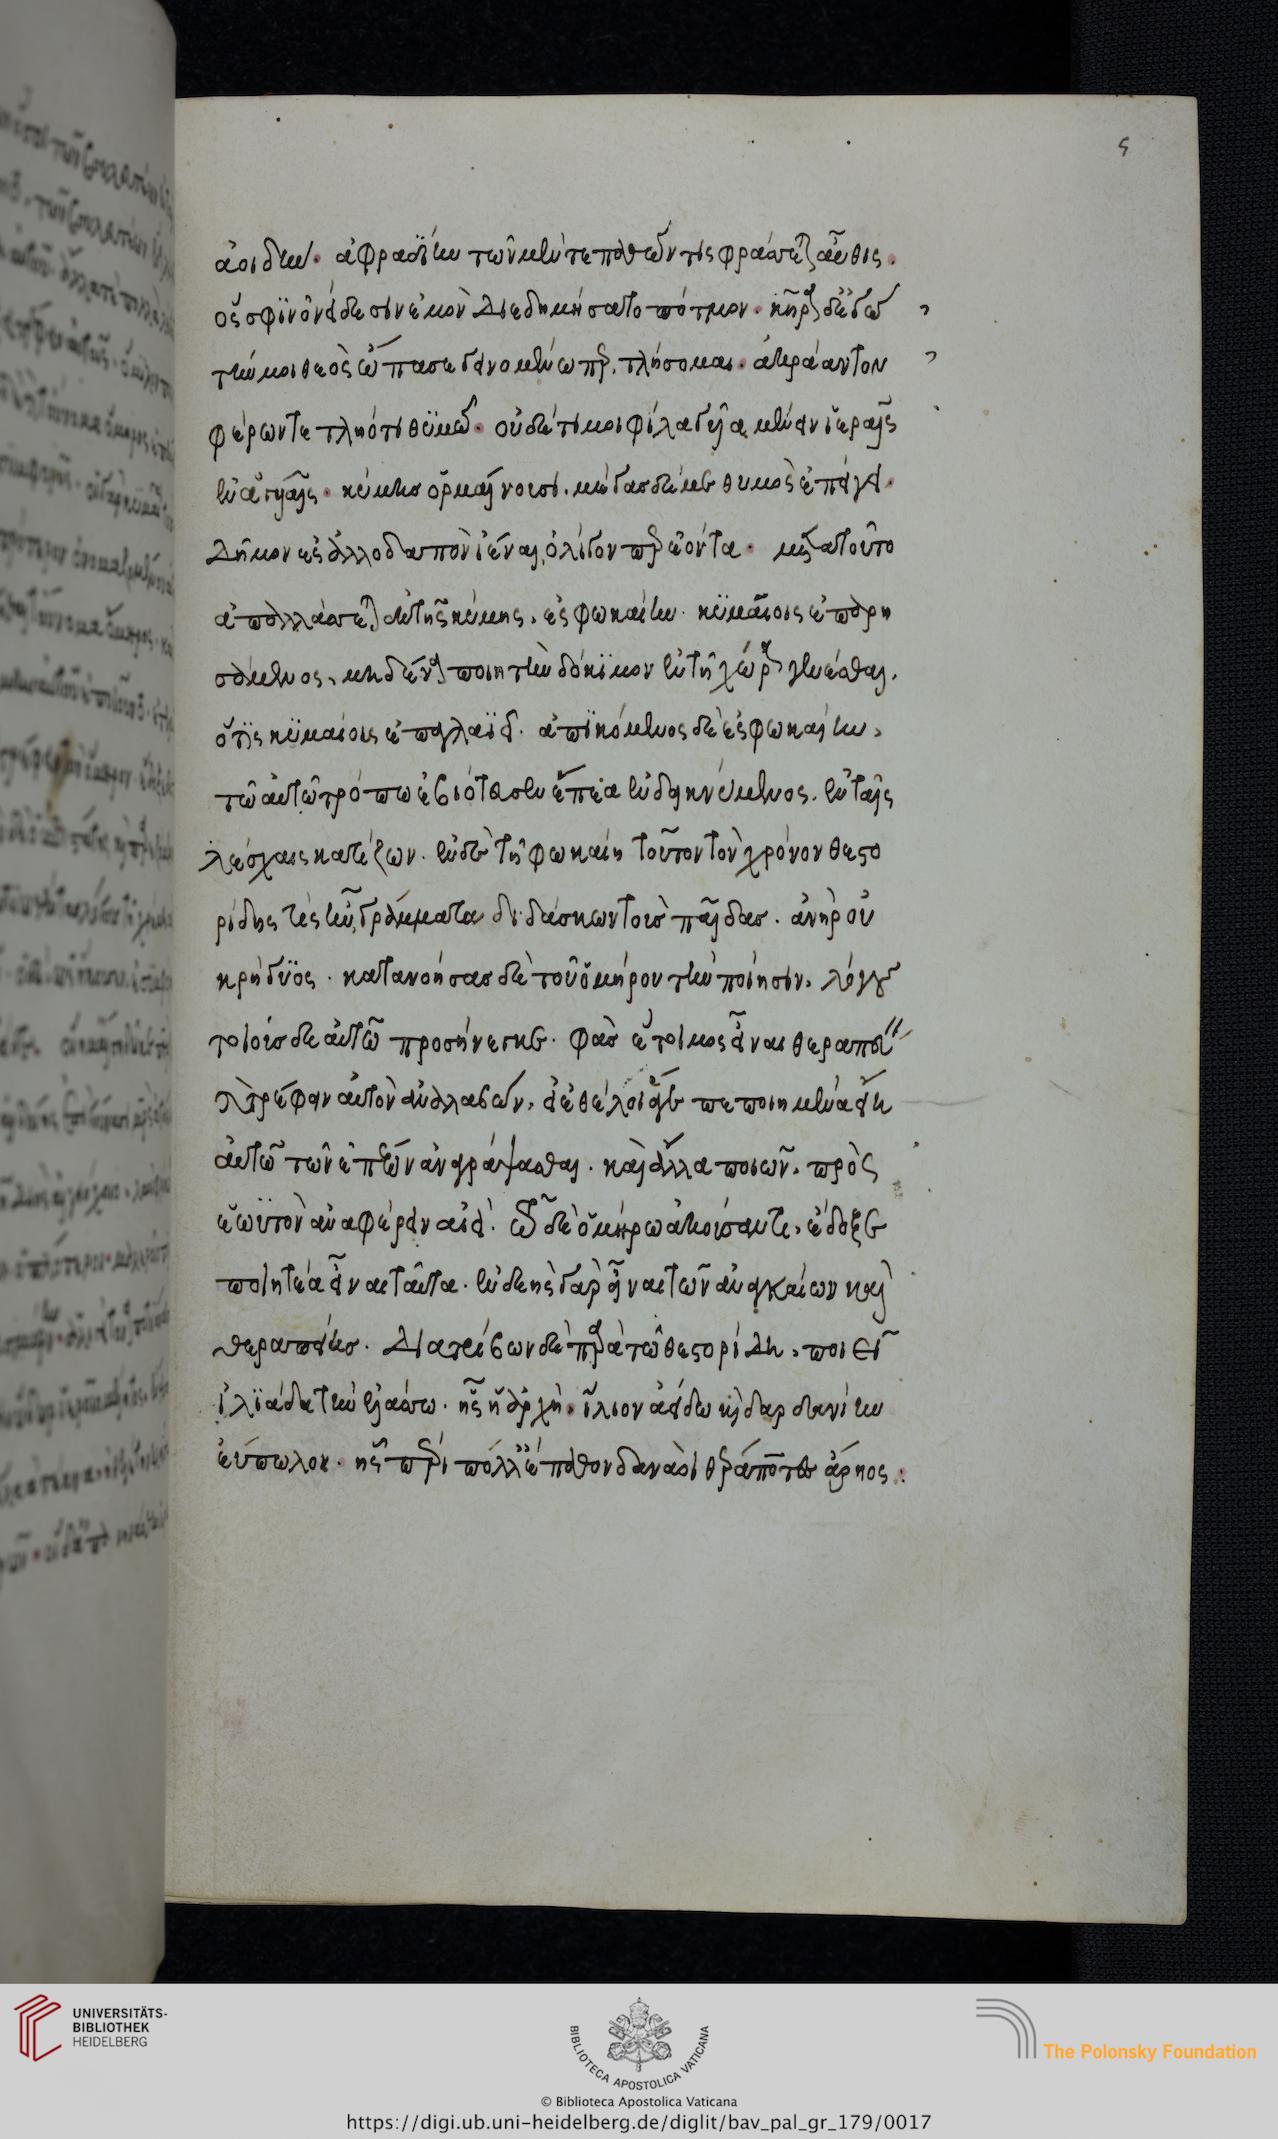 5
ἀοιδήν. ἀφραδίην τῶν μέν τε παθών τις φράσσεται αὖθις.
ὅς σφιν ὀνείδεσιν ἐμὸν διεδηλήσατο πότμον. κῆρα δ' ἐγὼ
τήν μοι θεὸς ὤπασε γεινομένω περ, τλήσομαι. ἀκράαντον
φέρων τετληότι θυμῷ. οὐδέ τί μοι φίλα γυῖα μένειν ἱεραῖς
ἐν ἀγυιαῖς. κύμης ὁρμαίνουσι. μέγας δέ με θυμὸς ἐπείγει.
δῆμον ἐς ἀλλοδαπὸν ἰέναι, ὀλίγον περ ἐόντα. μετὰ τοῦτο
ἀπαλλάσσεται ἐκ τῆς κύμης, ἐς φωκαίην. κυμαίοις ἐπαρη
σάμενος, μηδένα ποιητὴν δόκιμον ἐν τῇ χώρᾳ γενέσθαι.
ὅστις κυμαίοις ἐπαγλαϊεῖ. ἀπικόμενος δὲ ἐς φωκαίην,
τῶ αὐτῶ τρόπω ἐβιότευσεν ἔπεα ἐνδεικνύμενος. ἐν ταῖς
λέσχαις κατίζων. ἐν δὲ τῇ φωκαίη τοῦτον τὸν χρόνον θεστο
ρίδης τὶς ἦν, γράμματα διδάσκων τοὺς παῖδας. ἀνὴρ οὐ
κρήγυος. κατανοήσας δὲ τοῦ ὁμήρου τὴν ποίησιν, λόγους
τοιούσδε αὐτῶ προσήνεγκε. φὰς ἕτοιμος εἶναι θεραπεύειν
καὶ τρέφειν αὐτὸν ἀναλαβών, εἰ ἐθέλοι ἅ γε πεποιημένα εἴη
αὐτῶ τῶν ἐπέων ἀναγράψασθαι. καὶ ἄλλα ποιῶν, πρὸς
ἑωυτὸν ἀναφέρειν αἰεὶ. τῶ δὲ ὁμήρω ἀκούσαντι, ἔδοξε
ποιητέα εἶναι ταῦτα. ἐνδεὴς γὰρ ἦν καὶ τῶν ἀναγκαίων καὶ
θεραπείης. διατρίβων δὲ παρὰ τῶ θεστορίδη, ποιεῖ
ἰλιάδα τὴν ἐλάσσω. ἧς ἡ ἀρχὴ. ἴλιον ἀείδω καὶ δαρδανίην
εὔπωλον. ἧς πέρι πολλὰ πάθον δαναοὶ θεράποντες ἄρηος.
UNIVERSITÄTS-
BIBLIOTHEK
HEIDELBERG
BIBLIOTECA APOSTOLICA VATICANA
The Polonsky Foundation
© Biblioteca Apostolica Vaticana
https://digi.ub.uni-heidelberg.de/diglit/bav_pal_gr_179/0017